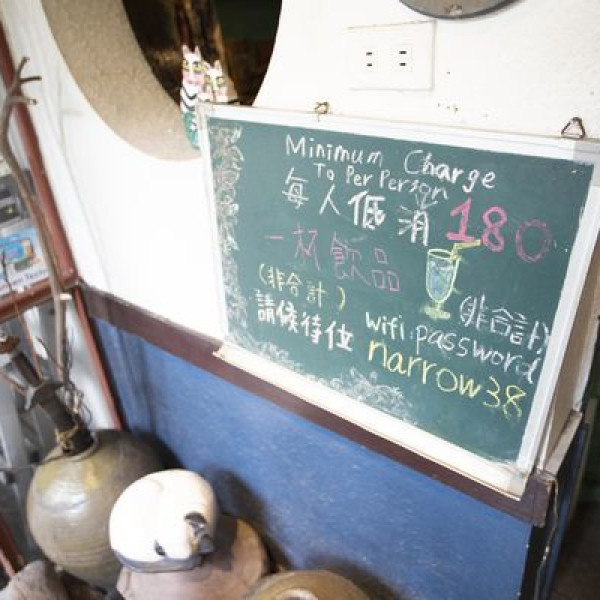 Minimum Charge
To Per Person
每人低消180
一杯飲品
(非合計)
(非合計)
請候待位
wifi password
narrow38